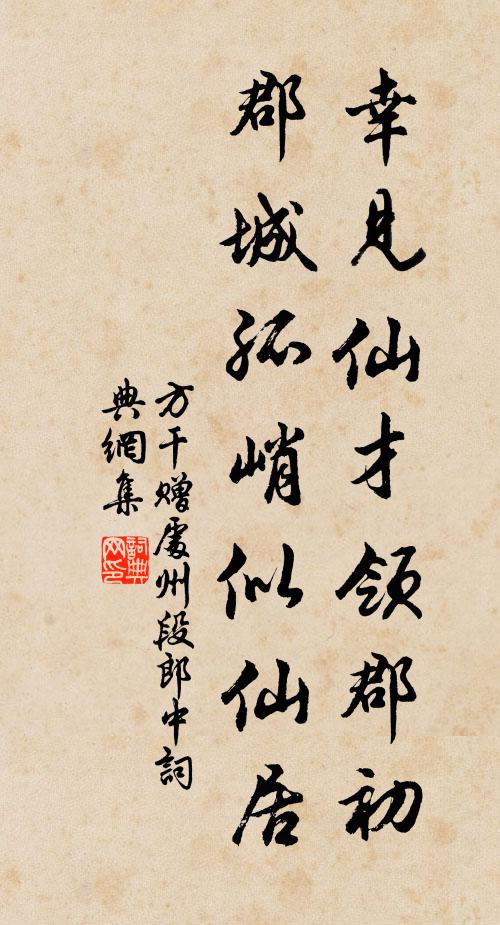 幸見仙才領郡初
郡城孤峭似仙居
方干贈處州段郎中詞
典網集
詞典
网印